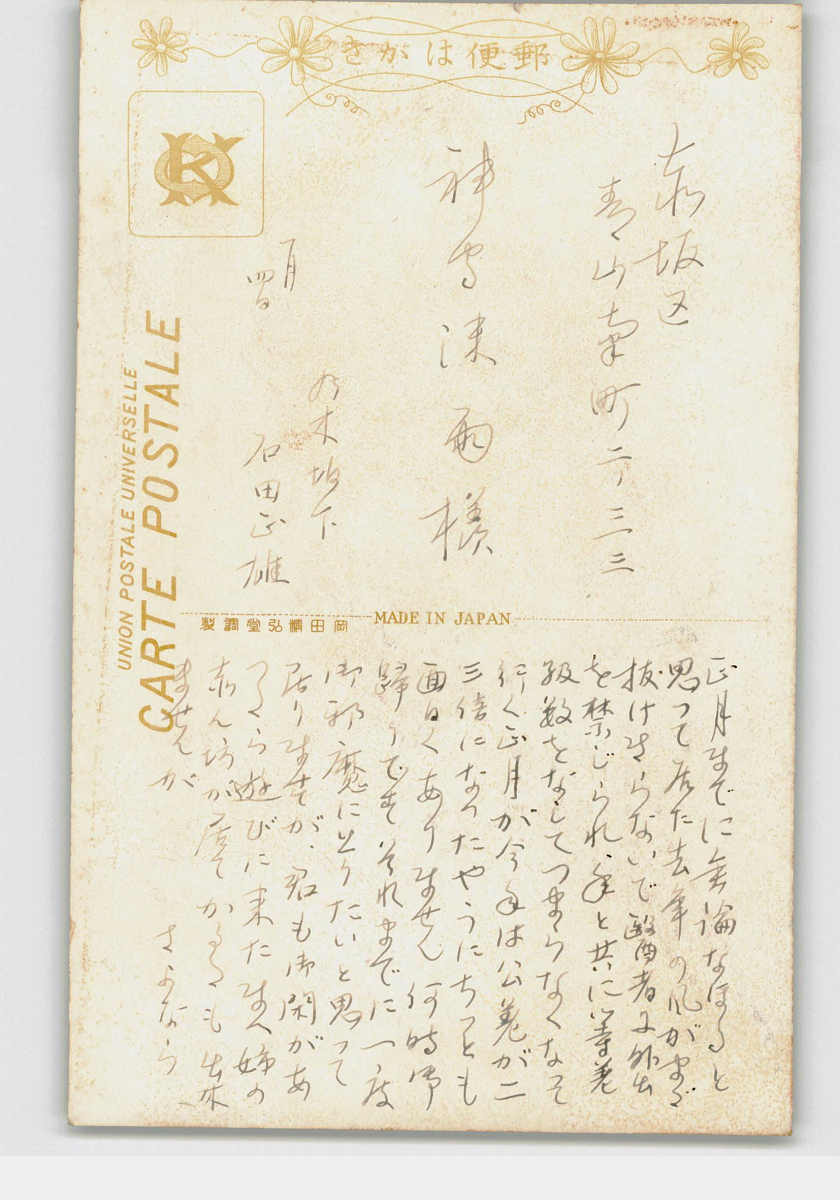 郵便はがき
赤坂区
青山南町二ノ三三
神
雨様
一月
四日
乃木坂下
石田正雄
UNION POSTALE UNIVERSELLE
CARTE POSTALE
MADE IN JAPAN
岡田精弘堂調製
正月までに無論なほると
思って居た去年の風がまだ
抜けきらないで醫者に外出
を禁じられ、年と共に等差
級数をなしてつまらなくなって
行く正月が今年は公差が二
三倍になったやうにちっとも
面白くありません 何時御
歸りですか それまでに一度
御邪魔に上りたいと思って
居りますが、君も御閑があ
つたら遊びに来た
赤ん坊が居て も出来
ませんが
さよなら